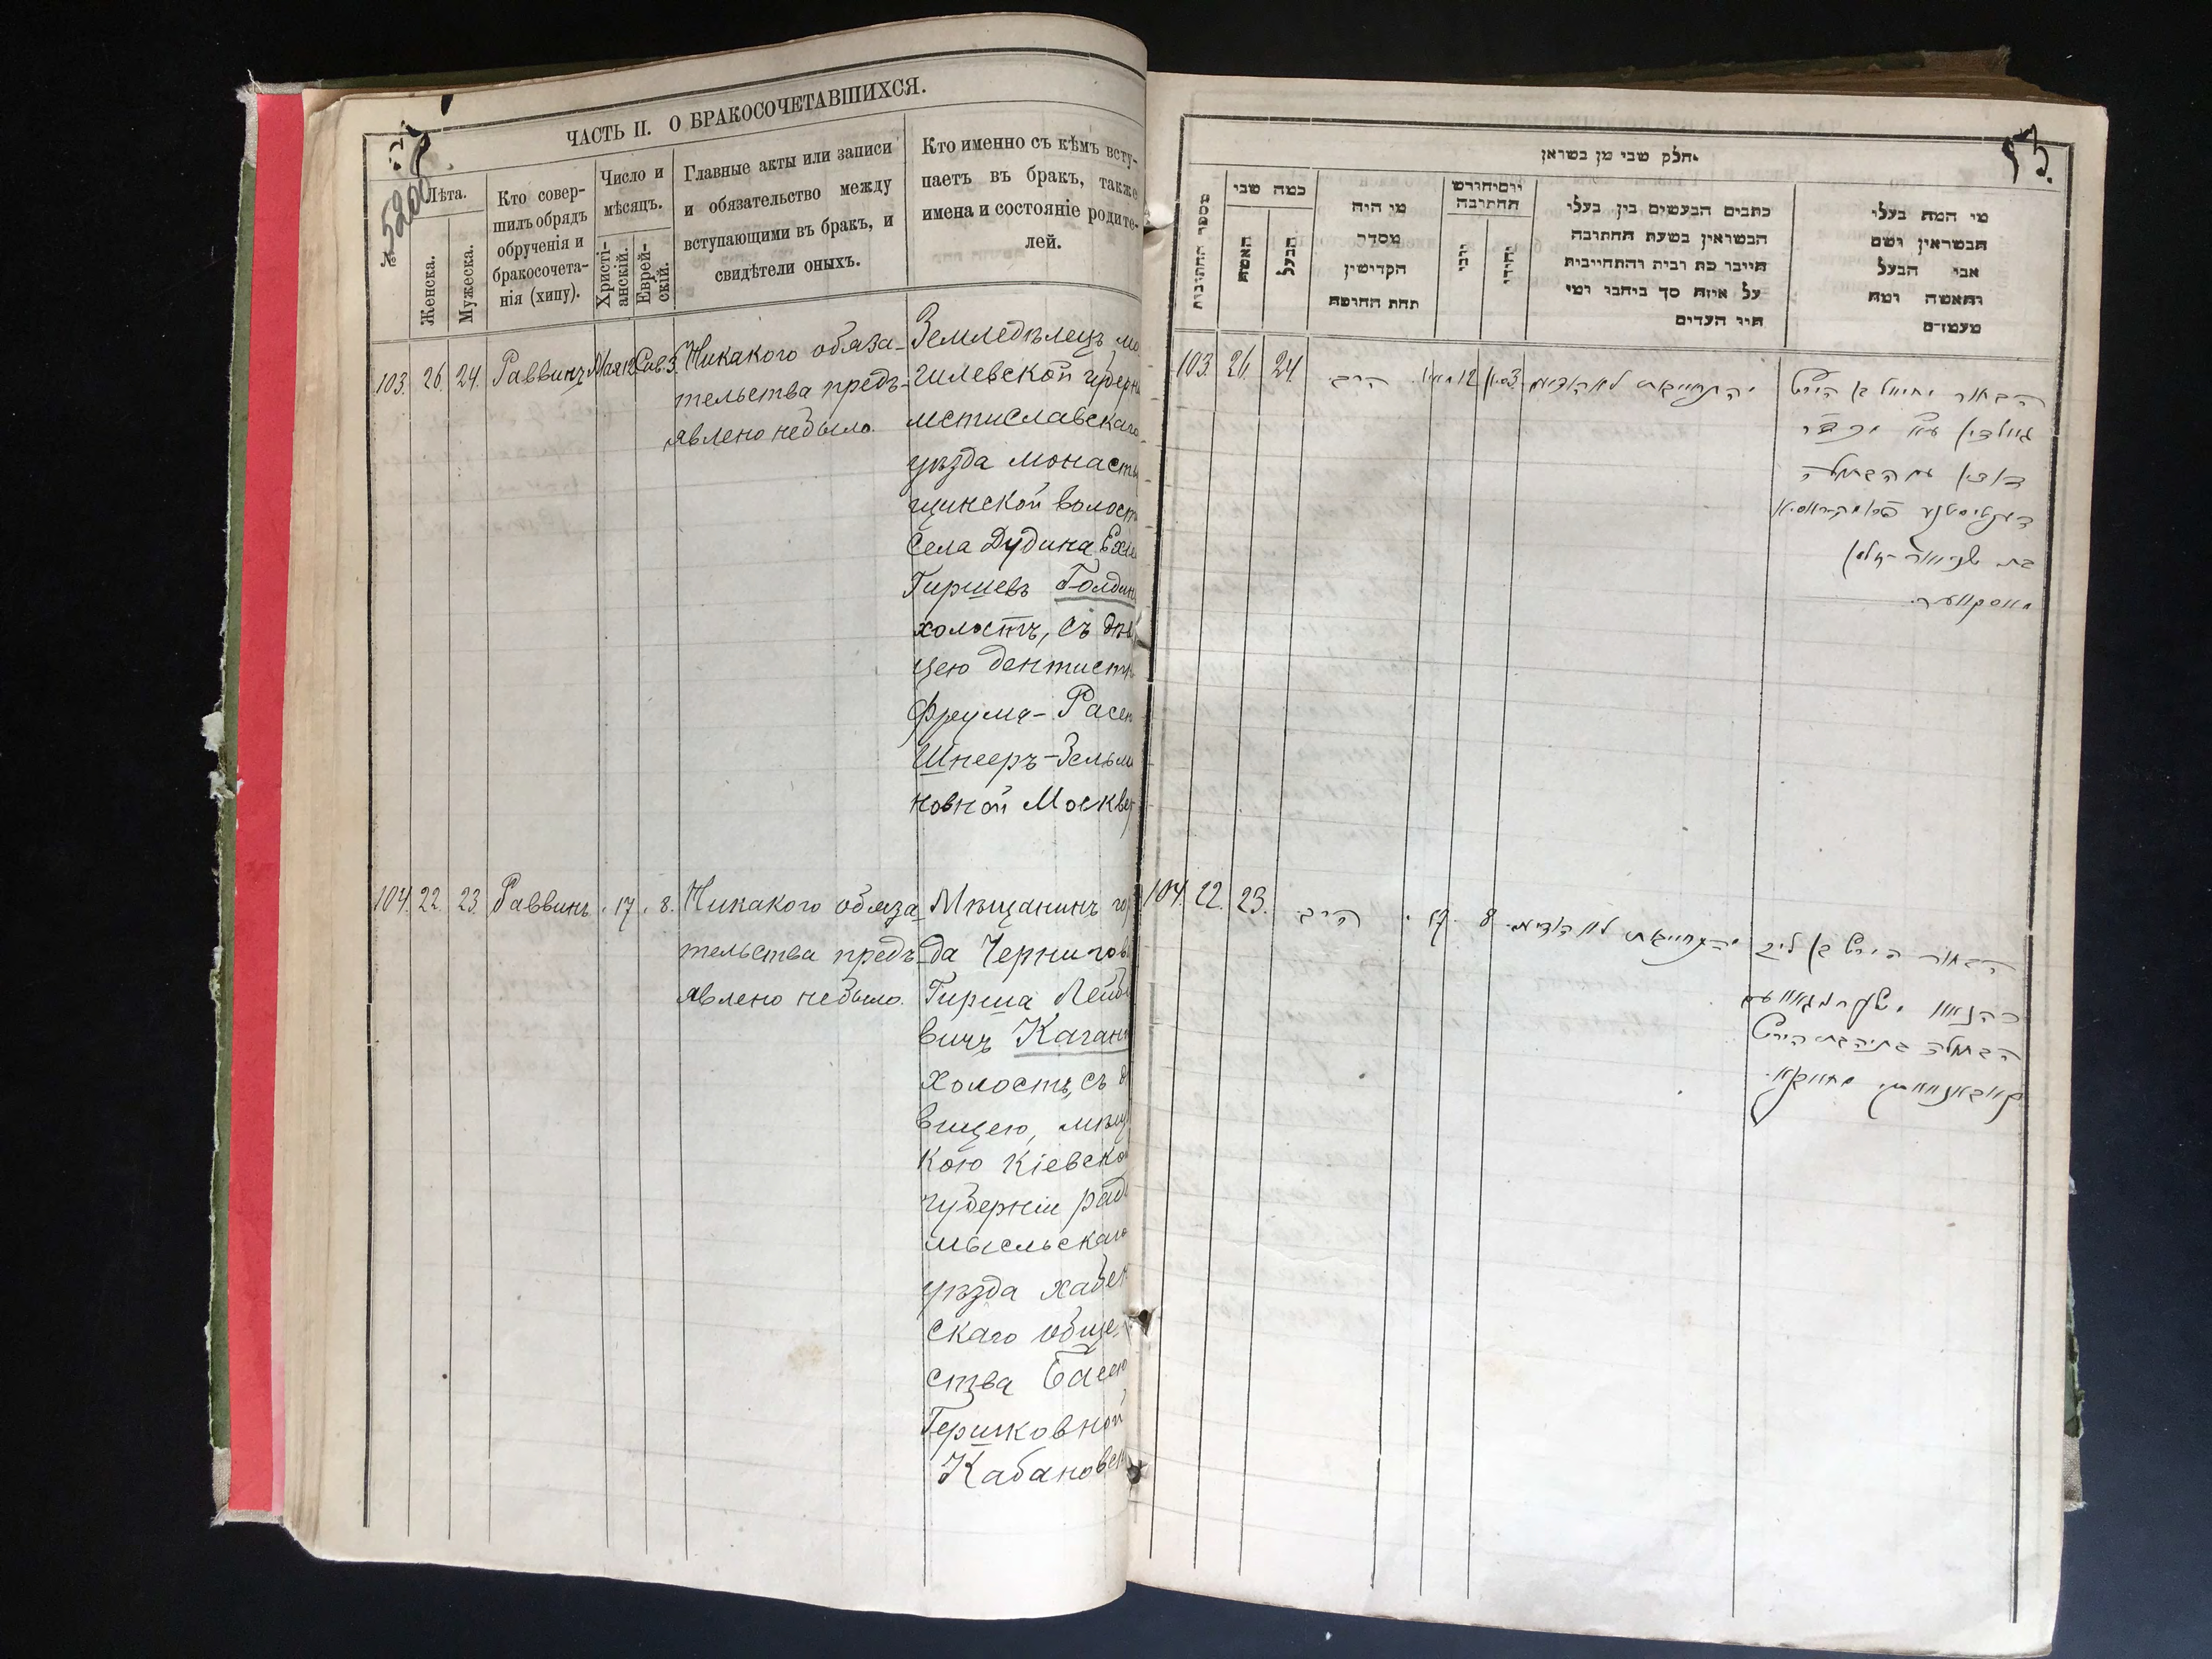 ЧАСТЬ II. О БРАКОСОЧЕТАВШИХСЯ.
№
Лѣта.
Женска.
Мужеска.
Кто совер-
шилъ обрядъ
обрученія и
бракосочета-
нія (хипу).
Число и
мѣсяцъ.
Христі-
анскій.
Еврей-
скій.
Главные акты или записи
и обязательство между
вступающими въ бракъ, и
свидѣтели оныхъ.
Кто именно съ кѣмъ всту-
паетъ въ бракъ, также
имена и состояніе родите-
лей.
103. 26. 24. Раввинъ Мая 12 Сив. 3.
Никакого обяза-
тельства предъ-
явлено небыло.
Земледѣлецъ мо
гилевской губерн
мстиславскаго
уѣзда монасты
щинской волост
села Дудина Ехи
Гиршевъ Голдин
холостъ, съ дѣв
цею дентистк
Фрума-Расею
Шнееръ-Зельма
новной Москвер
104. 22. 23. Раввинъ 17 8.
Никакого обяза
тельства предъ-
явлено небыло.
Мѣщанинъ го
да Чернигов
Гирша Лейбо
вичъ Каган
холостъ, съ д
вицею, мѣщ
кою Кіевско
губерніи рад
мысльскаго
уѣзда хабен
скаго обще
ства Басею
Гершковной
Кабановск
53.
חלק שני מן נשואין
מספר החתונות
כמה שני
האשה
הבעל
מי היה
מסדר
הקדושין
תחת החופה
יום וחודש
החתונה
נוצרי
יהודי
כתבים הנעשים בין בעלי
הנשואין בשעת החתונה
על איזה סך ביחבו ומי
היו העדים
מי המה בעלי
הנשואין ושם
אבי הבעל
והאשה ומה
מעמדם
103. 26. 24
הרב
12
3
הבחור יחיאל בן הירש
גאלדין
דודין עם הבתולה
דענטיסטקע פרומע-ראסיא
בת שניאור-זלמן
מאסקווער
104. 22. 23.
הרב
17
8
הבחור הירש בן ליב
הבתולה בתיה בת הירש